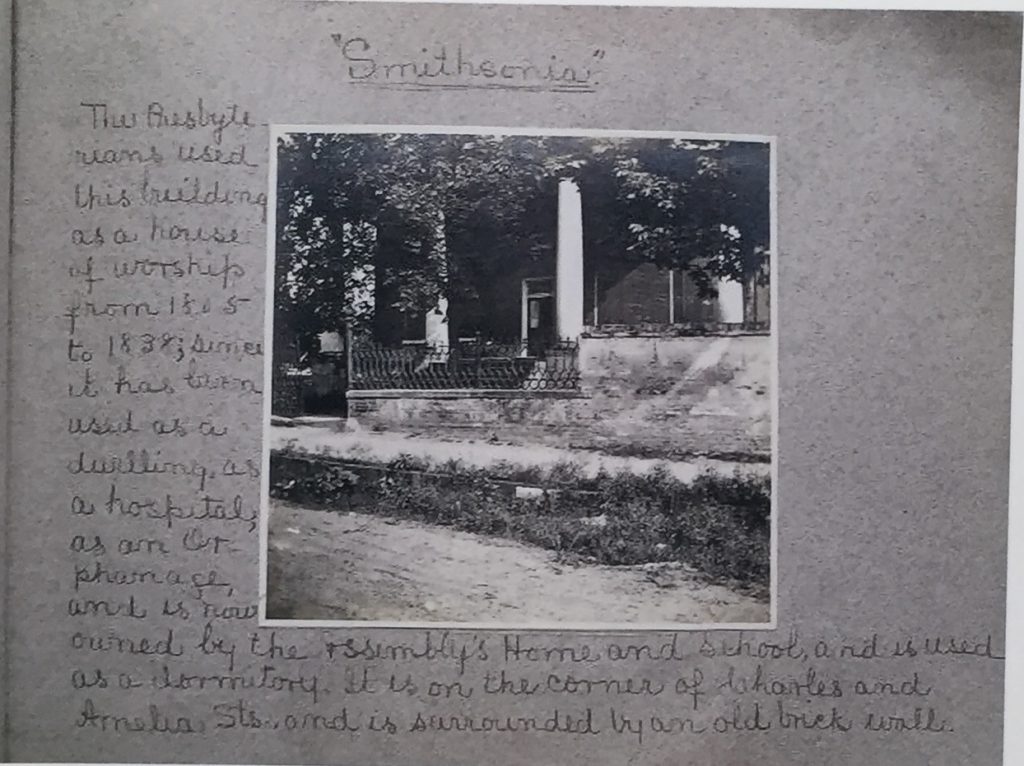 "Smithsonia"
The Presbyte
rians used
this building
as a house
of worship
from 1805
to 1838; since
it has been
used as a
dwelling, as
a hospital,
as an Or-
phanage,
and is now
owned by the Assembly's Home and School, and is used
as a dormitory. It is on the corner of Charles and
Amelia Sts. and is surrounded by an old brick wall.